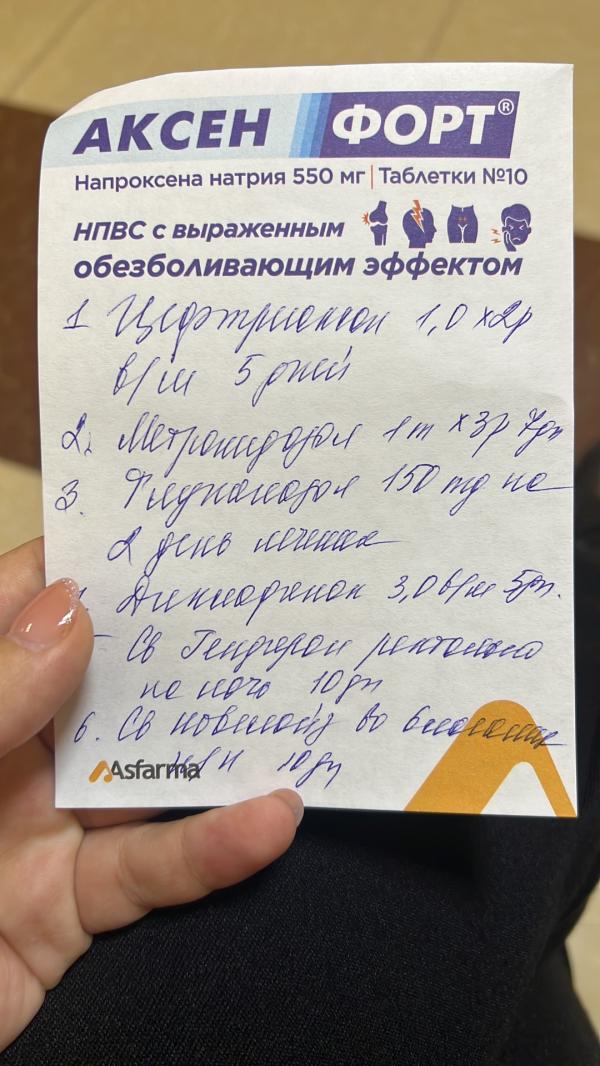 АКСЕН ФОРТ®
Напроксена натрия 550 мг | Таблетки №10
НПВС с выраженным
обезболивающим эффектом
1 Цефтриаксон 1,0 х2р
в/м 5 дней
2. Метронидазол 1т х3р 7дн
3. Флуконазол 150 мд на
2 день лечения
Диклофенак 3,0 в/м 5дн.
Св Генферон ректально
на ночь 10дн
6. Св во влагалище
10дн
Asfarma